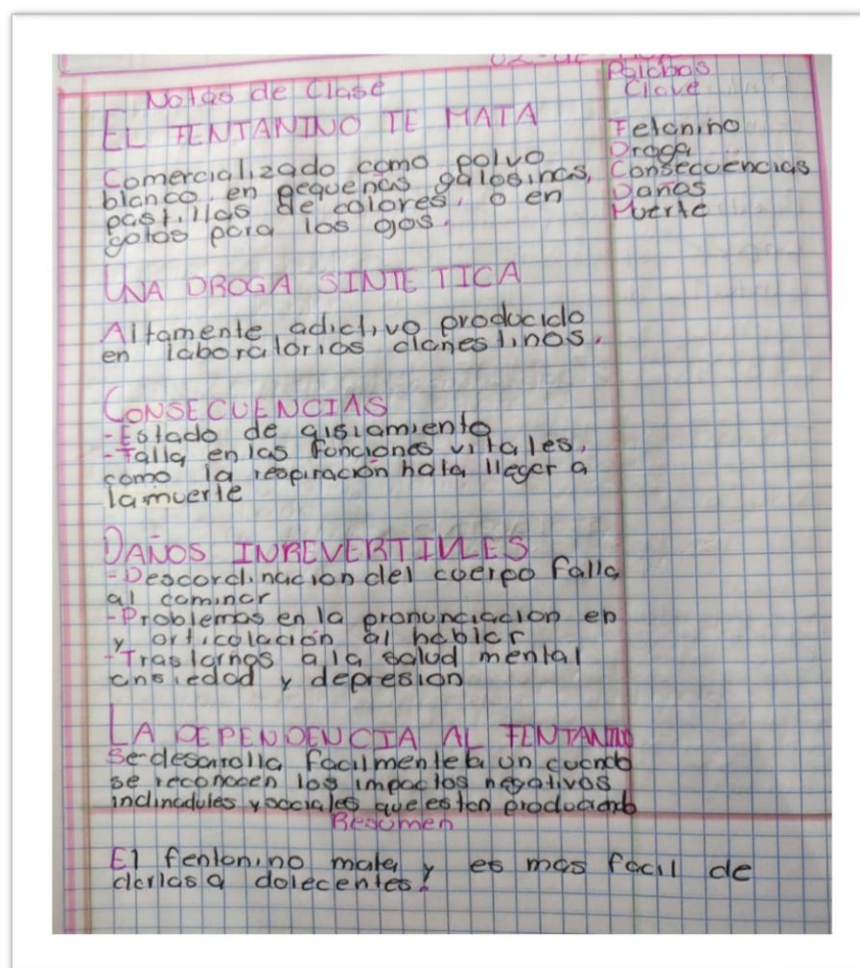 Notas de Clase
EL FENTANINO TE MATA
Comercializado como polvo
blanco, en pequeñas golosinas,
pastillas de colores, o en
gotas para los ojos.
UNA DROGA SINTETICA
Altamente adictivo producido
en laboratorios clanestinos.
CONSECUENCIAS
-Estado de aislamiento
-Falla en las funciones vitales,
como la respiración hata llegar a
la muerte
DAÑOS INREVERTIVLES
-Descordinacion del cuerpo falla
al caminar
-Problemas en la pronunciacion en
y articolación al hablar
-Trastornos a la salud mental
ansiedad y depresion
LA DEPENDENCIA AL FENTANINO
Se desarrolla facilmente a un cuando
se reconocen los impactos negativos
y sociales que estan produciendo
Palabas
Clave
Fetanino
Droga
Consecuencias
Daños
Muerte
Resumen
El fentanino mata y es mas facil de
darlas a dolecentes.